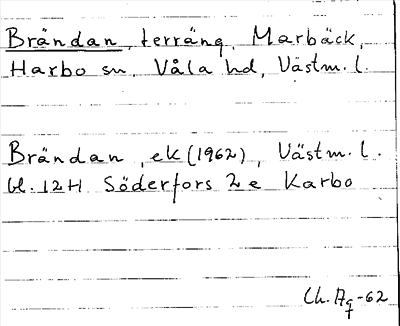 Brändan, terräng, Marbäck,
Harbo sn, Våla hd, Västm. l.
Brändan, ek (1962), Västm. l.
bl. 12H Söderfors 2 e Karbo
Ch. Ag -62